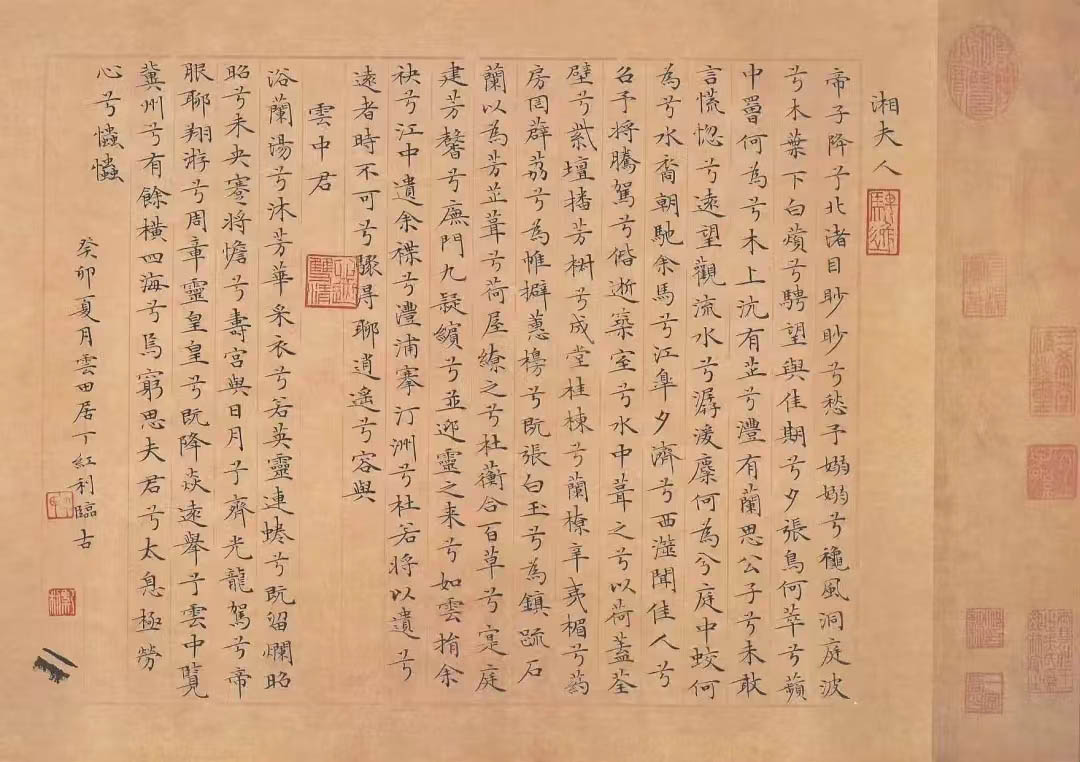 湘夫人
帝子降兮北渚目眇眇兮愁予嫋嫋兮龝風洞庭波
兮木葉下白薠兮騁望與佳期兮夕張鳥何萃兮蘋
中罾何為兮木上沅有芷兮澧有蘭思公子兮未敢
言慌惚兮遠望觀流水兮潺湲麋何為兮庭中蛟何
為兮水裔朝馳余馬兮江皋夕濟兮西澨聞佳人兮
召予將騰駕兮偕逝築室兮水中葺之兮以荷蓋荃
壁兮紫壇播芳樹兮成堂桂棟兮蘭橑辛夷楣兮葯
房罔薜荔兮為帷擗蕙櫋兮既張白玉兮為鎮疏石
蘭以為芳芷葺兮荷屋繚之兮杜蘅合百草兮寔庭
建芳馨兮廡門九疑繽兮並迎靈之来兮如雲捐余
袂兮江中遺余褋兮澧浦搴汀洲兮杜若將以遺兮
遠者時不可兮驟得聊逍遙兮容與
雲中君
浴蘭湯兮沐芳華采衣兮若英靈連蜷兮既留爛昭
昭兮未央蹇將憺兮壽宮與日月兮齊光龍駕兮帝
服聊翔游兮周章靈皇皇兮既降焱遠舉兮雲中覽
冀州兮有餘橫四海兮焉窮思夫君兮太息極勞
心兮忡忡
癸卯夏月雲田居丁紅利臨古